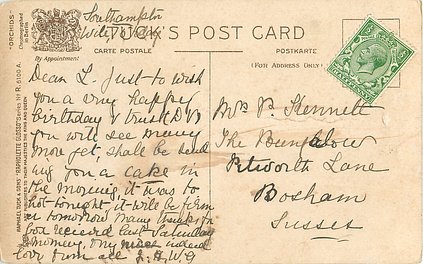 "ORCHIDS."
Chromographed
in Berlin
Southampton
TUCK'S POST CARD
CARTE POSTALE
POSTKARTE
By Appointment
(FOR ADDRESS ONLY)
RAPHAEL TUCK & SONS' "RAPHOLETTE GLOSSO" Series Nº R. 6100 A.
PUBLISHERS TO THEIR MAJESTIES THE KING AND QUEEN
Dear L. Just to wish
you a very happy
birthday I trust (DV)
you will see many
more yet, shall be send
ing you a cake in
the morning, it was to
hot tonight it will be firm
er tomorrow many thanks for
box received last Saturday
morning, very nice indeed
love from all
Mrs P. Kennett
The Bungalow
Petworth Lane
Bosham
Sussex